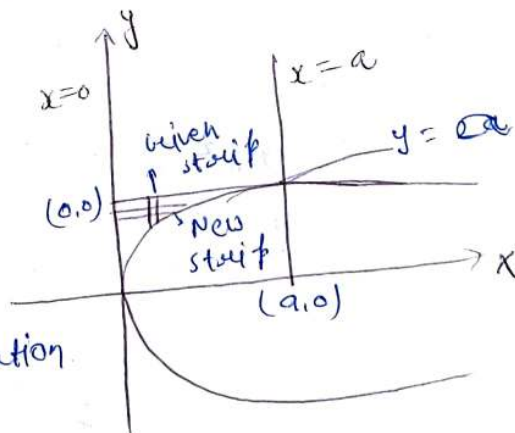 y
x=0
x=a
Given
strip
y = a
(0,0)
New
strip
X
(a,0)
ation